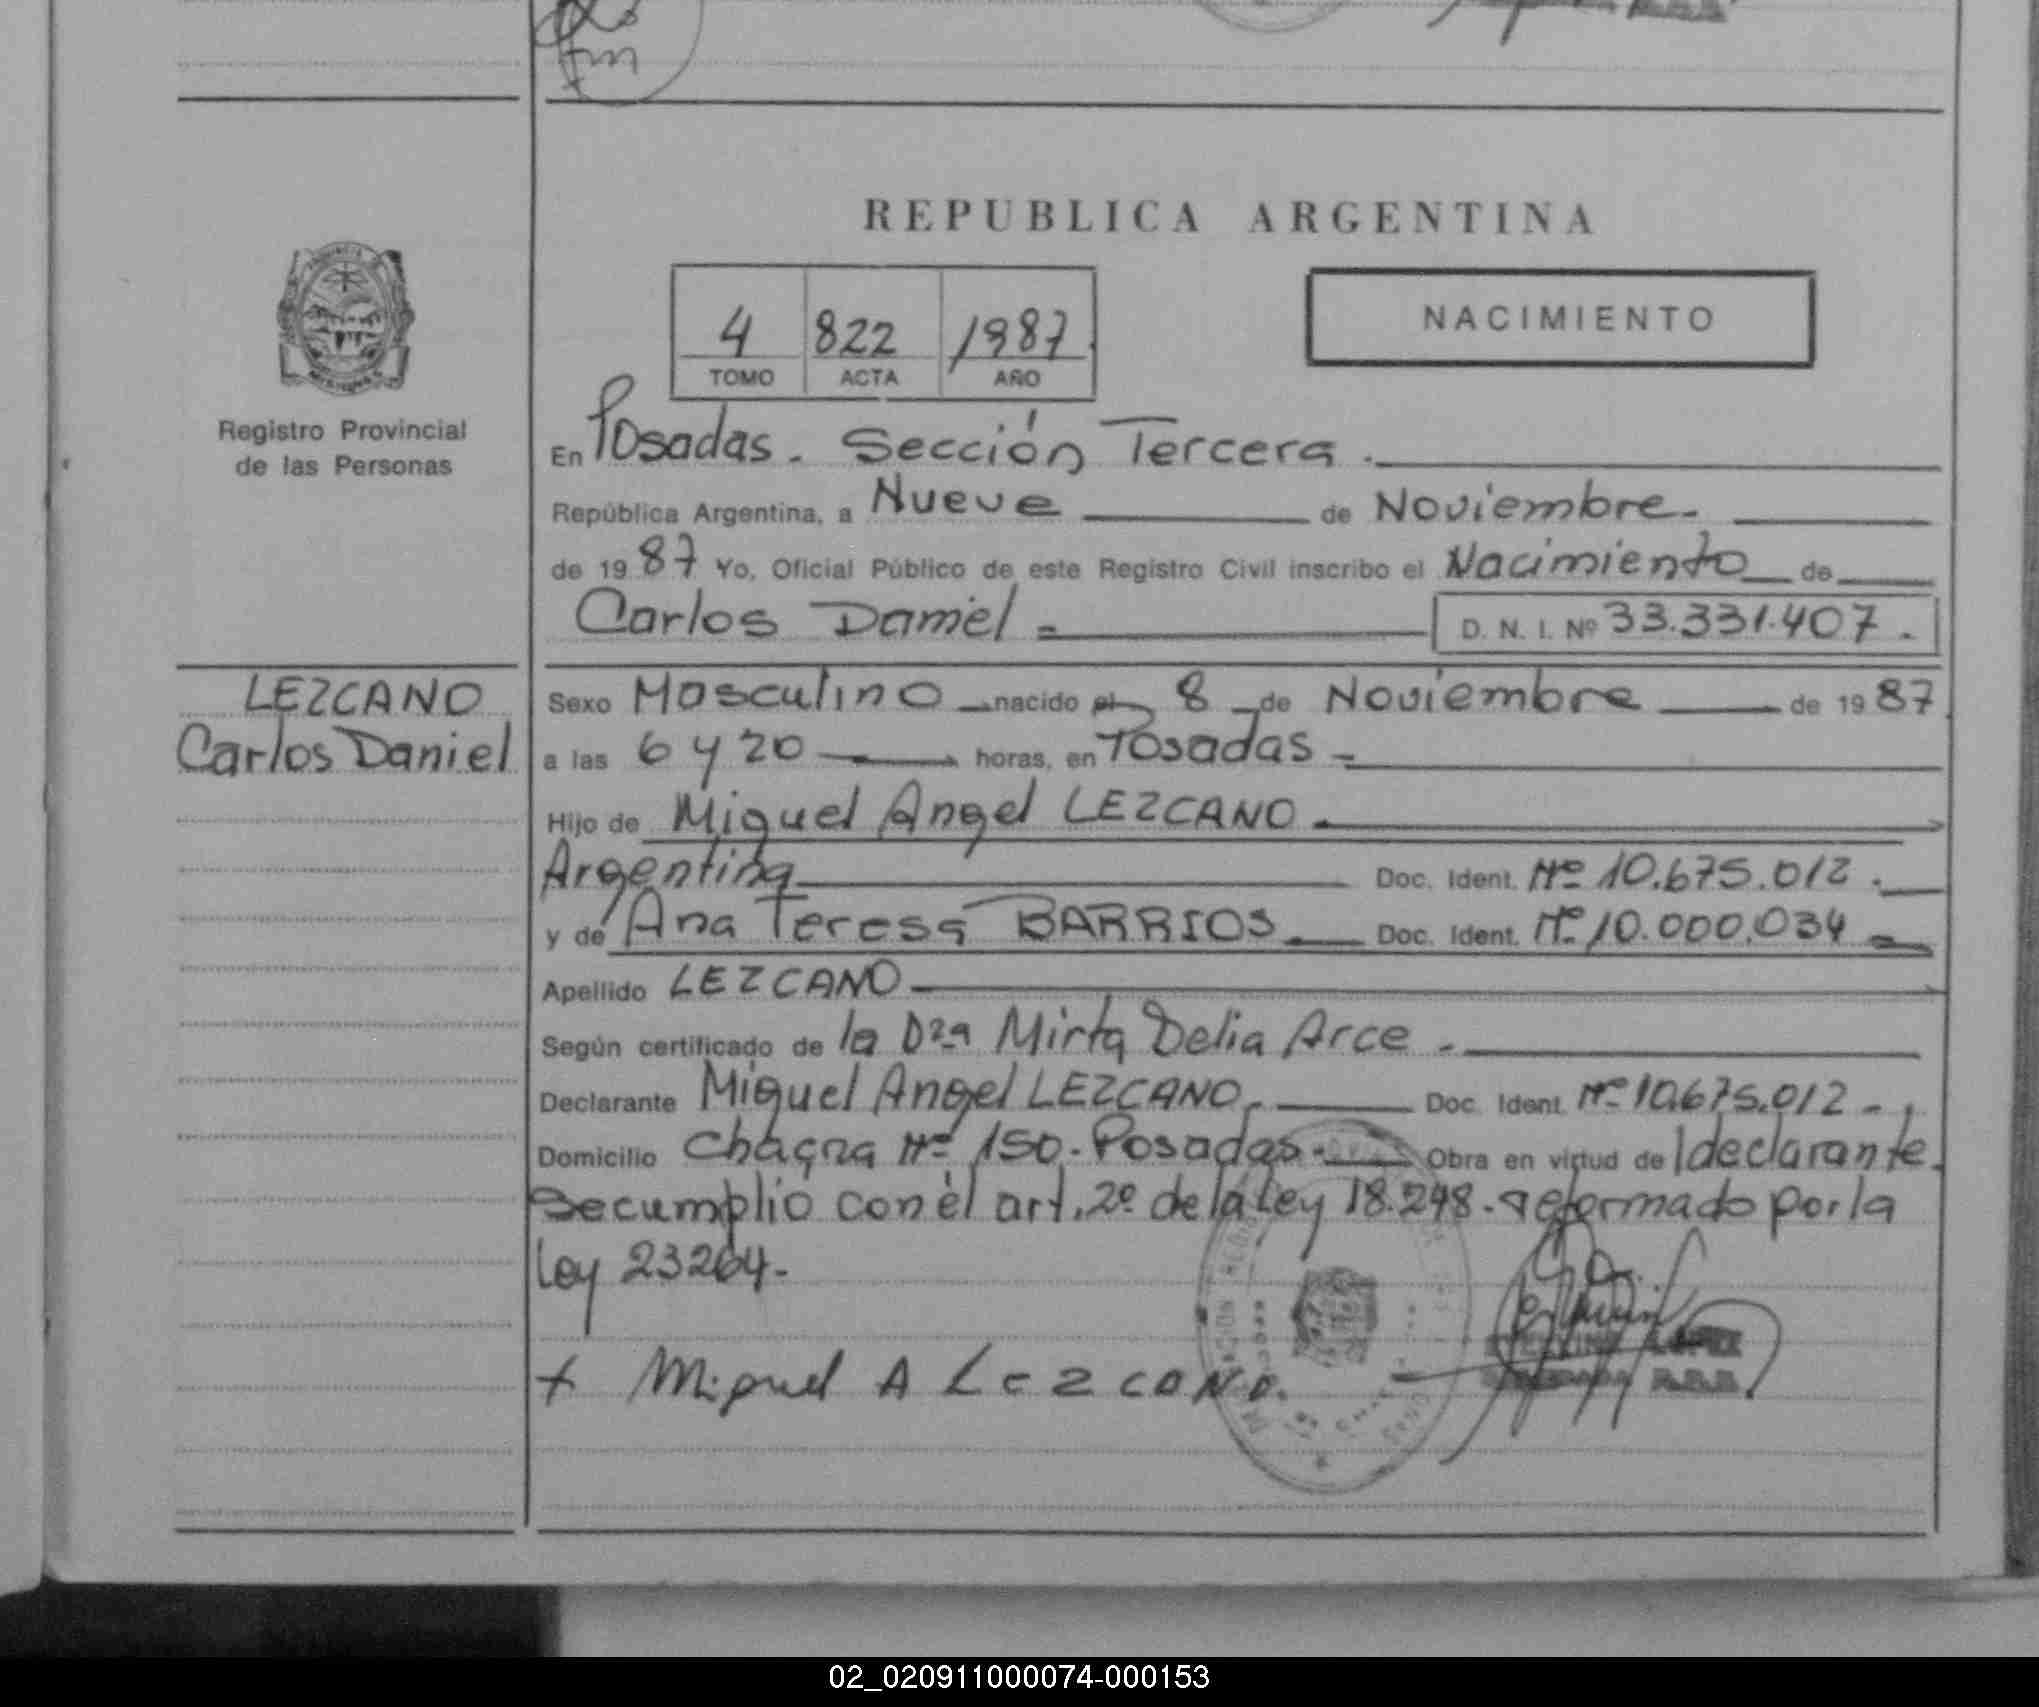 REPUBLICA ARGENTINA
4 822 1987
TOMO ACTA AÑO
NACIMIENTO
Registro Provincial
de las Personas
En Posadas. Sección Tercera.
República Argentina, a Nueve de Noviembre.
de 1987 Yo, Oficial Público de este Registro Civil inscribo el Nacimiento de
Carlos Daniel D. N. I. Nº 33.331.407.
LEZCANO
Carlos Daniel
Sexo Masculino nacido el 8 de Noviembre de 1987
a las 6 y 20 horas, en Posadas
Hijo de Miguel Angel LEZCANO
Argentina Doc. Ident. Nº 10.675.012.
y de Ana Teresa BARRIOS Doc. Ident. Nº 10.000.034
Apellido LEZCANO
Según certificado de la Dra Mirta Delia Arce
Declarante Miguel Angel LEZCANO. Doc. Ident. Nº 10.675.012
Domicilio Chacra Nº 150. Posadas. Obra en virtud de l declarante.
Se cumplio con el art. 2º de la Ley 18.248. reformado por la
Ley 23264.
+ Miguel A LezcaNo.
02_020911000074-000153